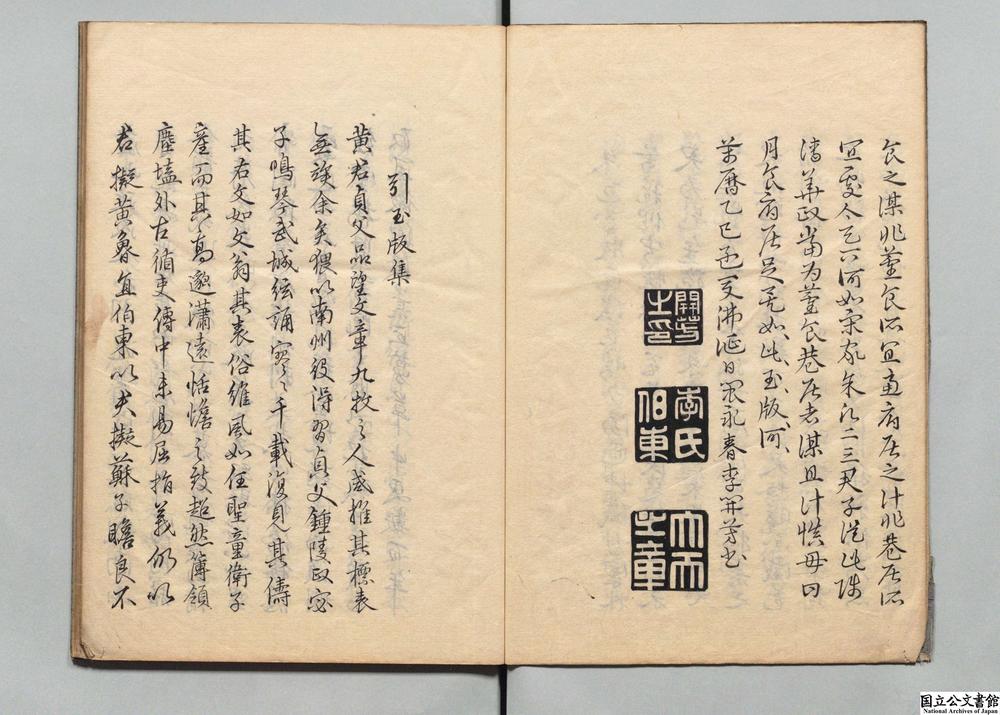 食之謀非藿食所宜盡病居之計非巷居所
宜憂今又何如宋家朱公二三君子從此跡
濤 政當為藿食巷居者謀且計慎毋曰
月食病居足矣如此玉版何
萬曆乙巳孟夏沸誕日 永春李開芳書
開芳之印
李氏伯東
之章
引玉版集
黃君貞父品望文章九牧之人咸推其標表
無俟余矣猥以南州役得習貞父鍾陵政宓
子鳴琴武城絃誦寥寥千載復見其儔
其右文如文翁其表俗維風如任聖童衛子
產而其高邈瀟遠恬憺之致超然簿領
塵壒外古循吏傳中未易屈指義仍以
君擬黃魯直伯東以君擬蘇子瞻良不
国立公文書館
National Archives of Japan